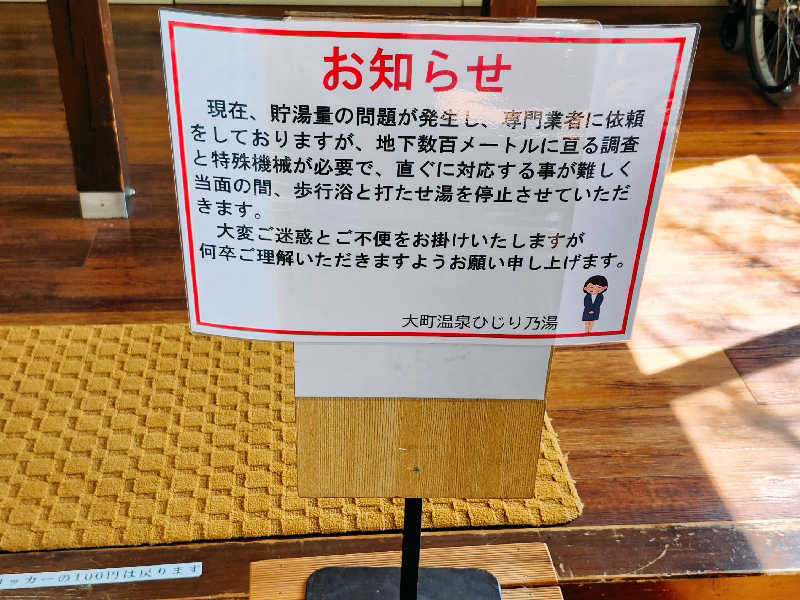 お知らせ
現在、貯湯量の問題が発生し、専門業者に依頼
をしておりますが、地下数百メートルに亘る調査
と特殊機械が必要で、直ぐに対応する事が難しく
当面の間、歩行浴と打たせ湯を停止させていただ
きます。
大変ご迷惑とご不便をお掛けいたしますが
何卒ご理解いただきますようお願い申し上げます。
大町温泉ひじり乃湯
ロッカーの100円は戻ります